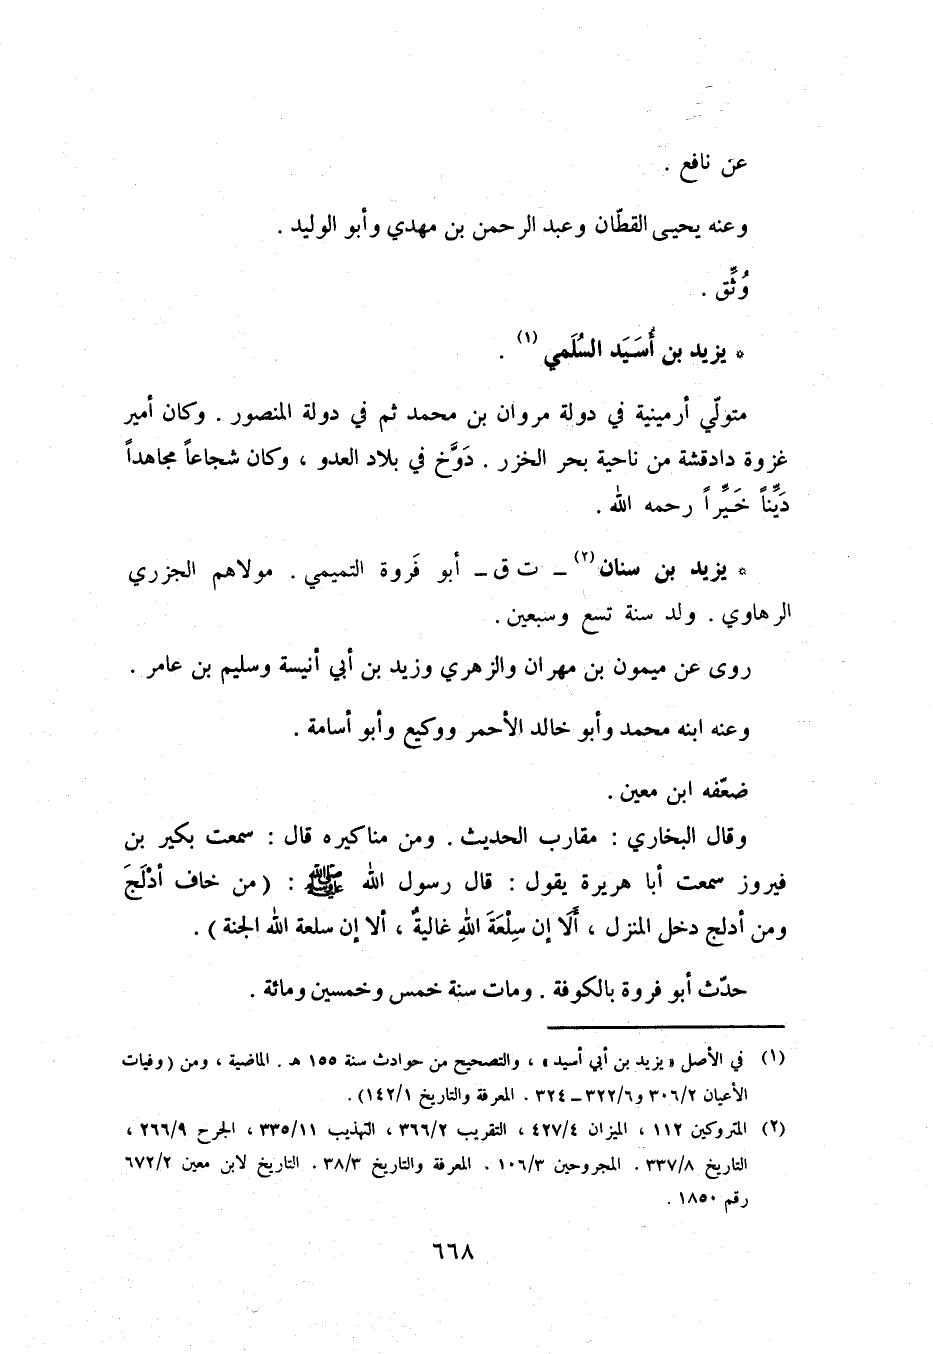 عن نافع .
وعنه يحيى القطّان وعبد الرحمن بن مهدي وأبو الوليد .
وُثِّق .
* يزيد بن أُسَيَد السُلَمي (١) .
متولّي أرمينية في دولة مروان بن محمد ثم في دولة المنصور . وكان أمير
غزوة دادقشة من ناحية بحر الخزر . دَوَّخ في بلاد العدو ، وكان شجاعاً مجاهداً
دَيِّناً خَيِّراً رحمه الله .
* يزيد بن سنان (٢) ـ ت ق ـ أبو فَروة التميمي . مولاهم الجزري
الرهاوي . ولد سنة تسع وسبعين .
روى عن ميمون بن مهران والزهري وزيد بن أبي أنيسة وسليم بن عامر .
وعنه ابنه محمد وأبو خالد الأحمر ووكيع وأبو أسامة .
ضعّفه ابن معين .
وقال البخاري : مقارب الحديث . ومن مناكيره قال : سمعت بكير بن
فيروز سمعت أبا هريرة يقول : قال رسول الله ﷺ : (من خاف أدْلَجَ
ومن أدلج دخل المنزل ، أَلَا إن سِلْعَةَ اللهِ غاليةٌ ، ألا إن سلعة الله الجنة ) .
حدّث أبو فروة بالكوفة . ومات سنة خمس وخمسين ومائة .
(١) في الأصل «يزيد بن أبي أسيد» ، والتصحيح من حوادث سنة ١٥٥ هـ . الماضية ، ومن (وفيات
الأعيان ٣٠٦/٢ و٣٢٢/٦ ـ ٣٢٤ . المعرفة والتاريخ ١٤٢/١) .
(٢) المتروكين ١١٢ ، الميزان ٤٢٧/٤ ، التقريب ٣٦٦/٢ ، التهذيب ٣٣٥/١١ ، الجرح ٢٦٦/٩ ،
التاريخ ٣٣٧/٨ . المجروحين ١٠٦/٣ . المعرفة والتاريخ ٣٨/٣ . التاريخ لابن معين ٦٧٢/٢
رقم ١٨٥٠ .
٦٦٨